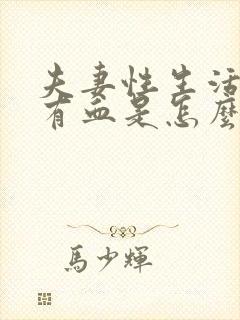 夫妻性生活
有血是怎麼
馬少輝